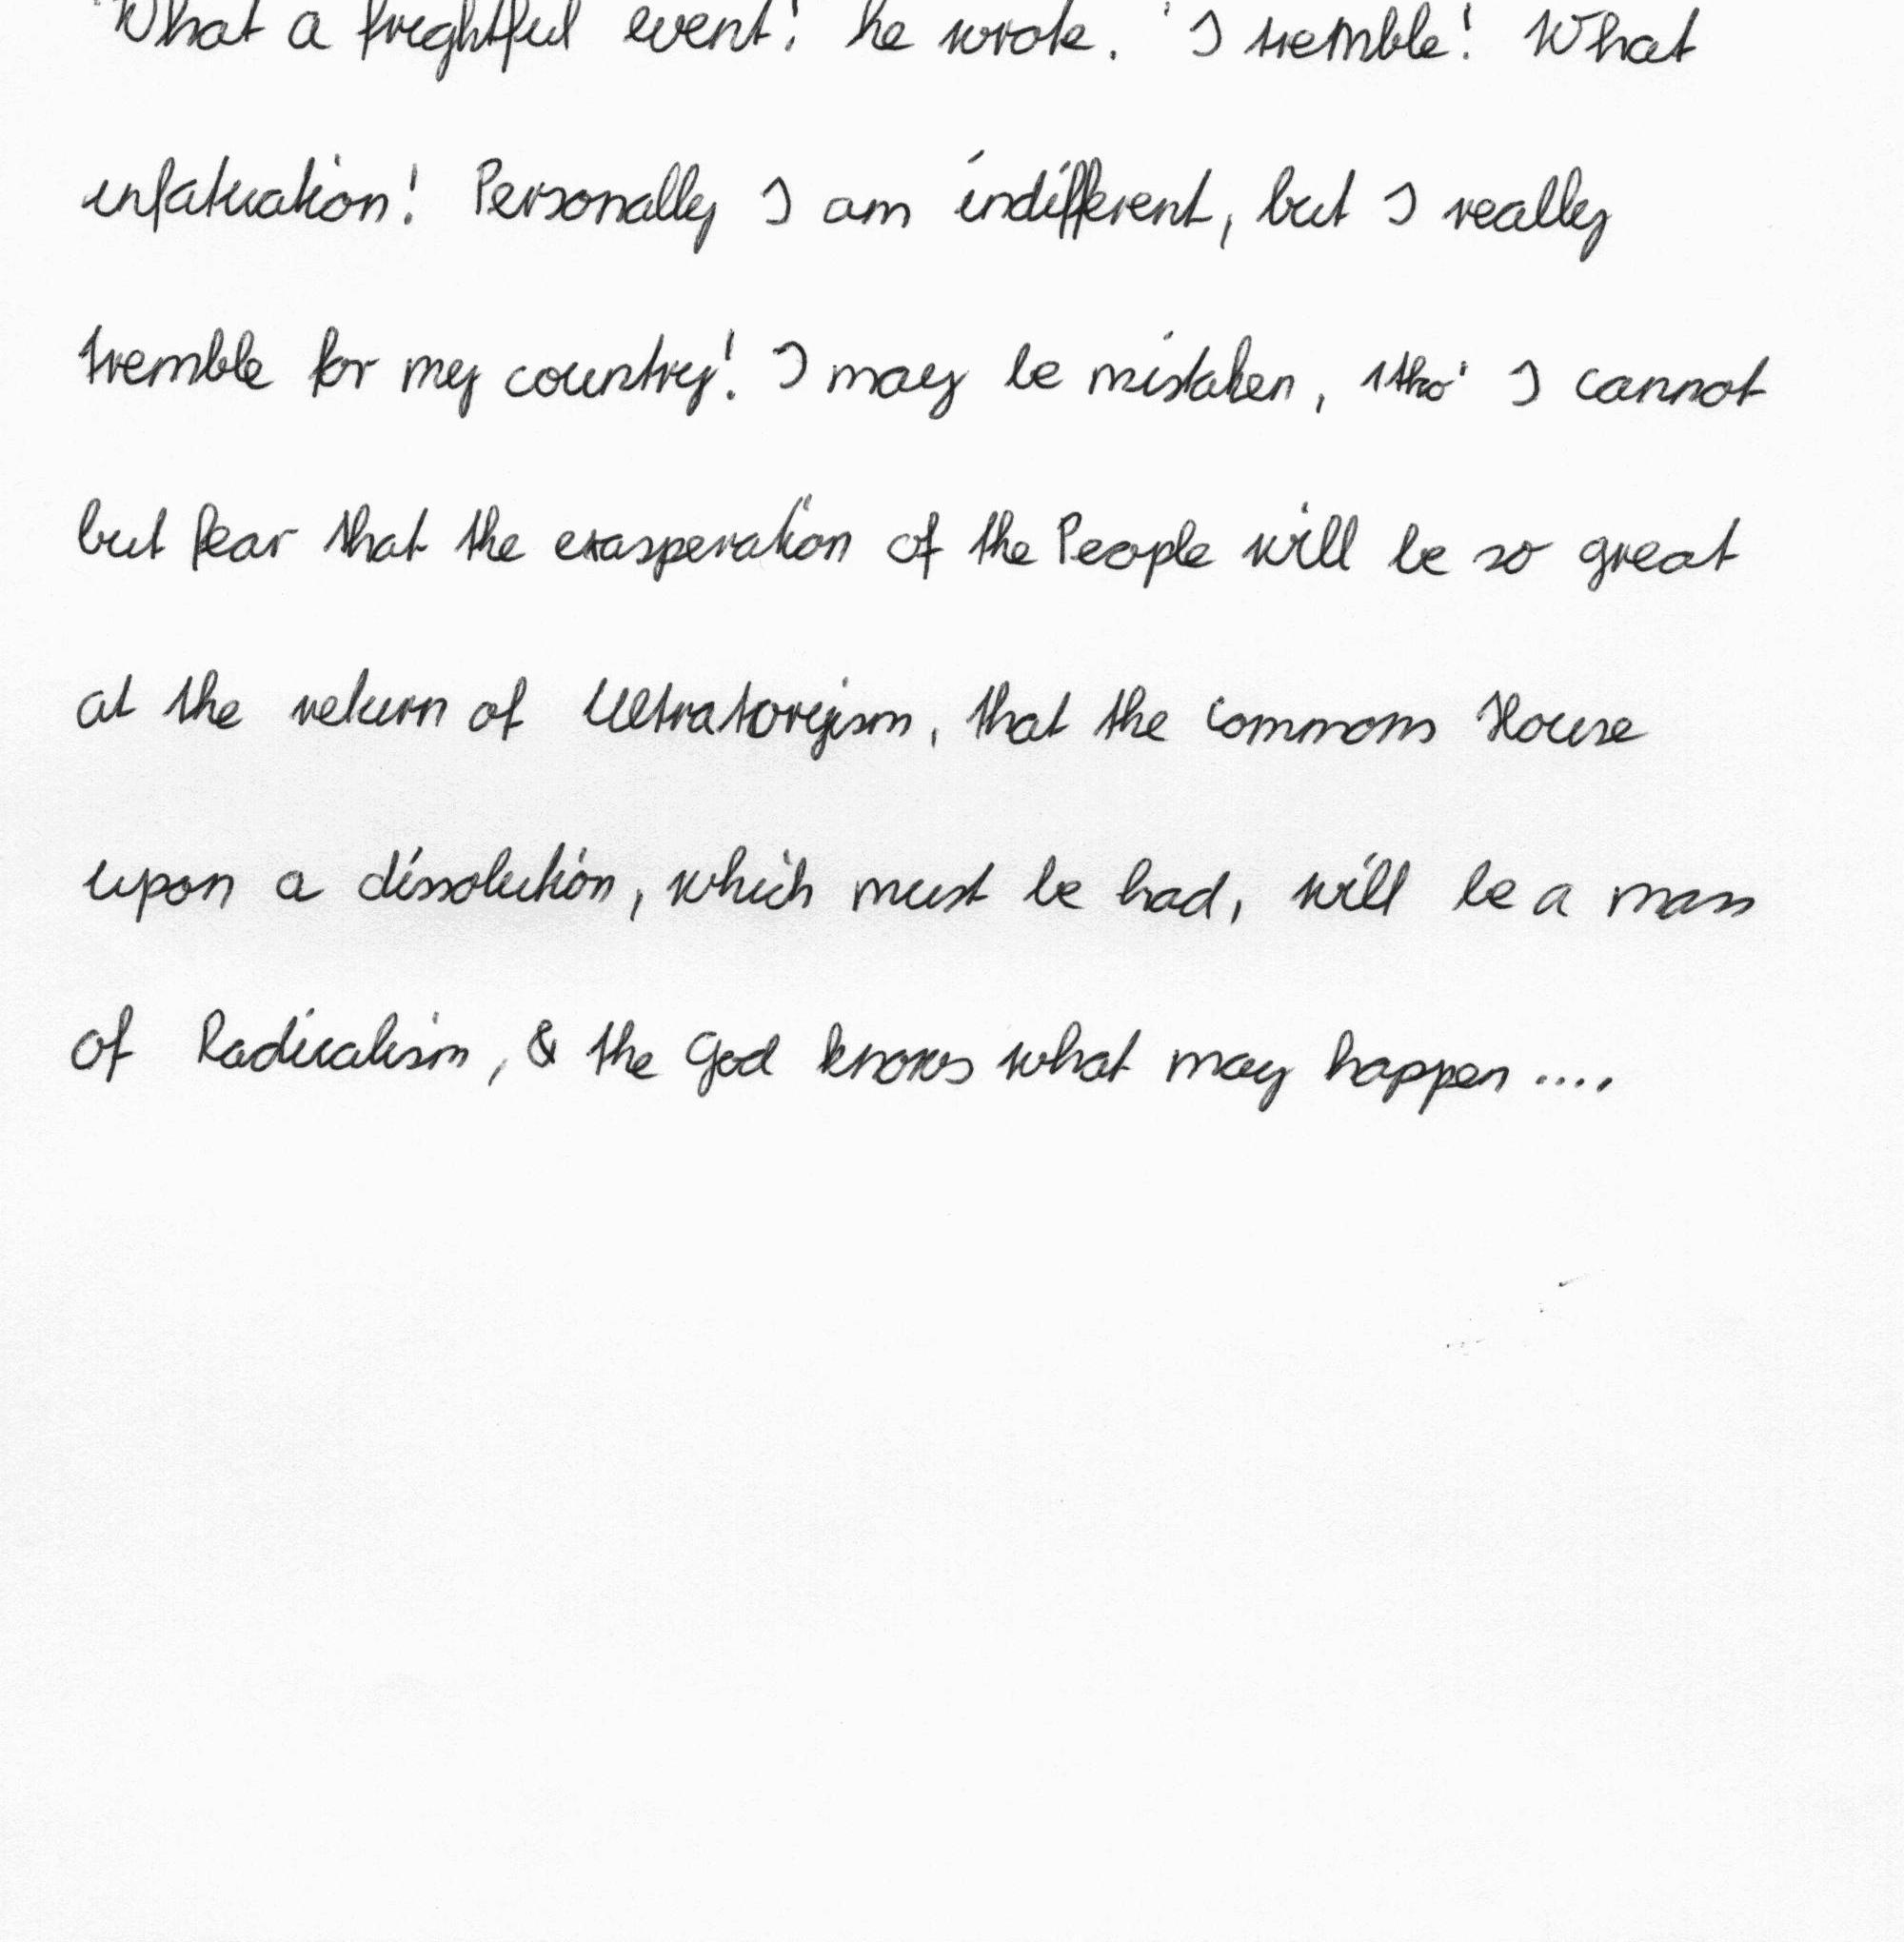 'What a frightful event! he wrote. 'I tremble! What
infatuation! Personally I am indifferent, but I really
tremble for my country! I may be mistaken, tho' I cannot
but fear that the exasperation of the People will be so great
at the return of Ultratoryism, that the Commons House
upon a dissolution, which must be had, will be a mass
of Radicalism, & the God knows what may happen ....